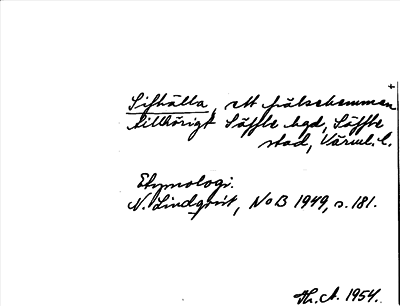 Sifhälla, ett frälsehemman
tillhörigt Säffle hgd, Säffle
stad, Värml. l.
Etymologi.
N. Lindqvist, NoB 1949, s. 181.
Th. A. 1954.